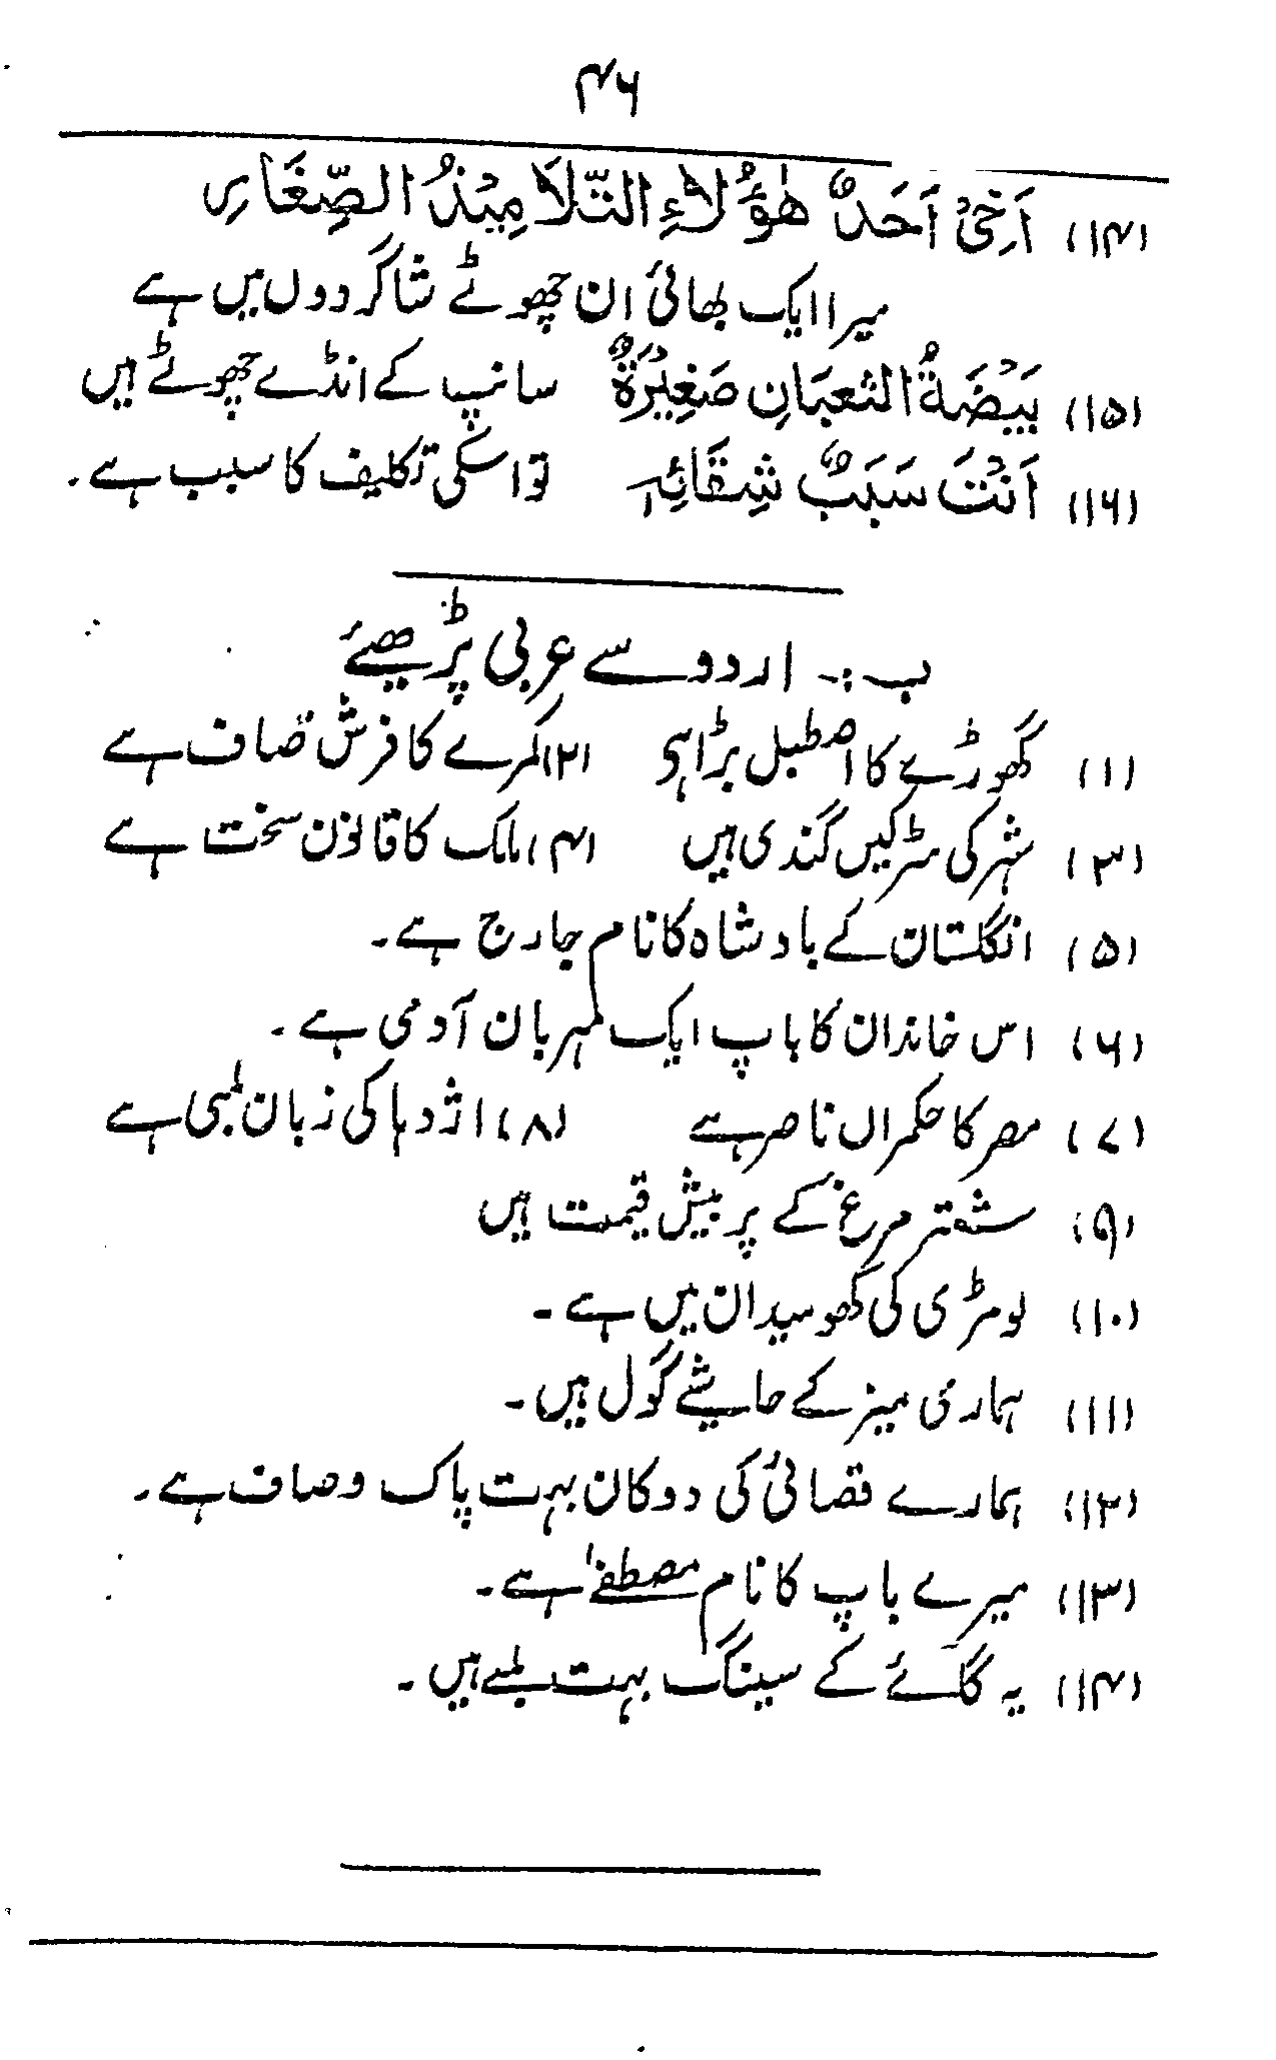 ۴۶
(۱۴) اَخِیْ اَحَدٌ هٰؤُلَاءِ التَّلَامِیْذُ الصِّغَارِ
میرا ایک بھائی ان چھوٹے شاگردوں میں ہے
(۱۵) بَیْضَةُ الثعبَانِ صَغِیْرَةٌ سانپ کے انڈے چھوٹے ہیں
(۱۶) اَنْتَ سَبَبٌ شِقَائِہٖ تو اسکی تکلیف کا سبب ہے۔
ب :۔ اردو سے عربی پڑھیئے
(۱) گھوڑے کا اصطبل بڑا ہی (۲) کمرے کا فرش صاف ہے
(۳) شہر کی سڑکیں گندی ہیں (۴) ملک کا قانون سخت ہے
(۵) انگلستان کے بادشاہ کا نام جارج ہے۔
(۶) اس خاندان کا باپ ایک مہربان آدمی ہے۔
(۷) مصر کا حکمراں ناصر ہے (۸) اژدہا کی زبان لمبی ہے
(۹) شتر مرغ کے پر بیش قیمت ہیں
(۱۰) لومڑی کی کھو میدان میں ہے۔
(۱۱) ہماری میز کے حاشیے گول ہیں۔
(۱۲) ہمارے قصائی کی دوکان بہت پاک وصاف ہے۔
(۱۳) میرے باپ کا نام مصطفےٰ ہے۔
(۱۴) یہ گائے کے سینگ بہت لمبے ہیں۔